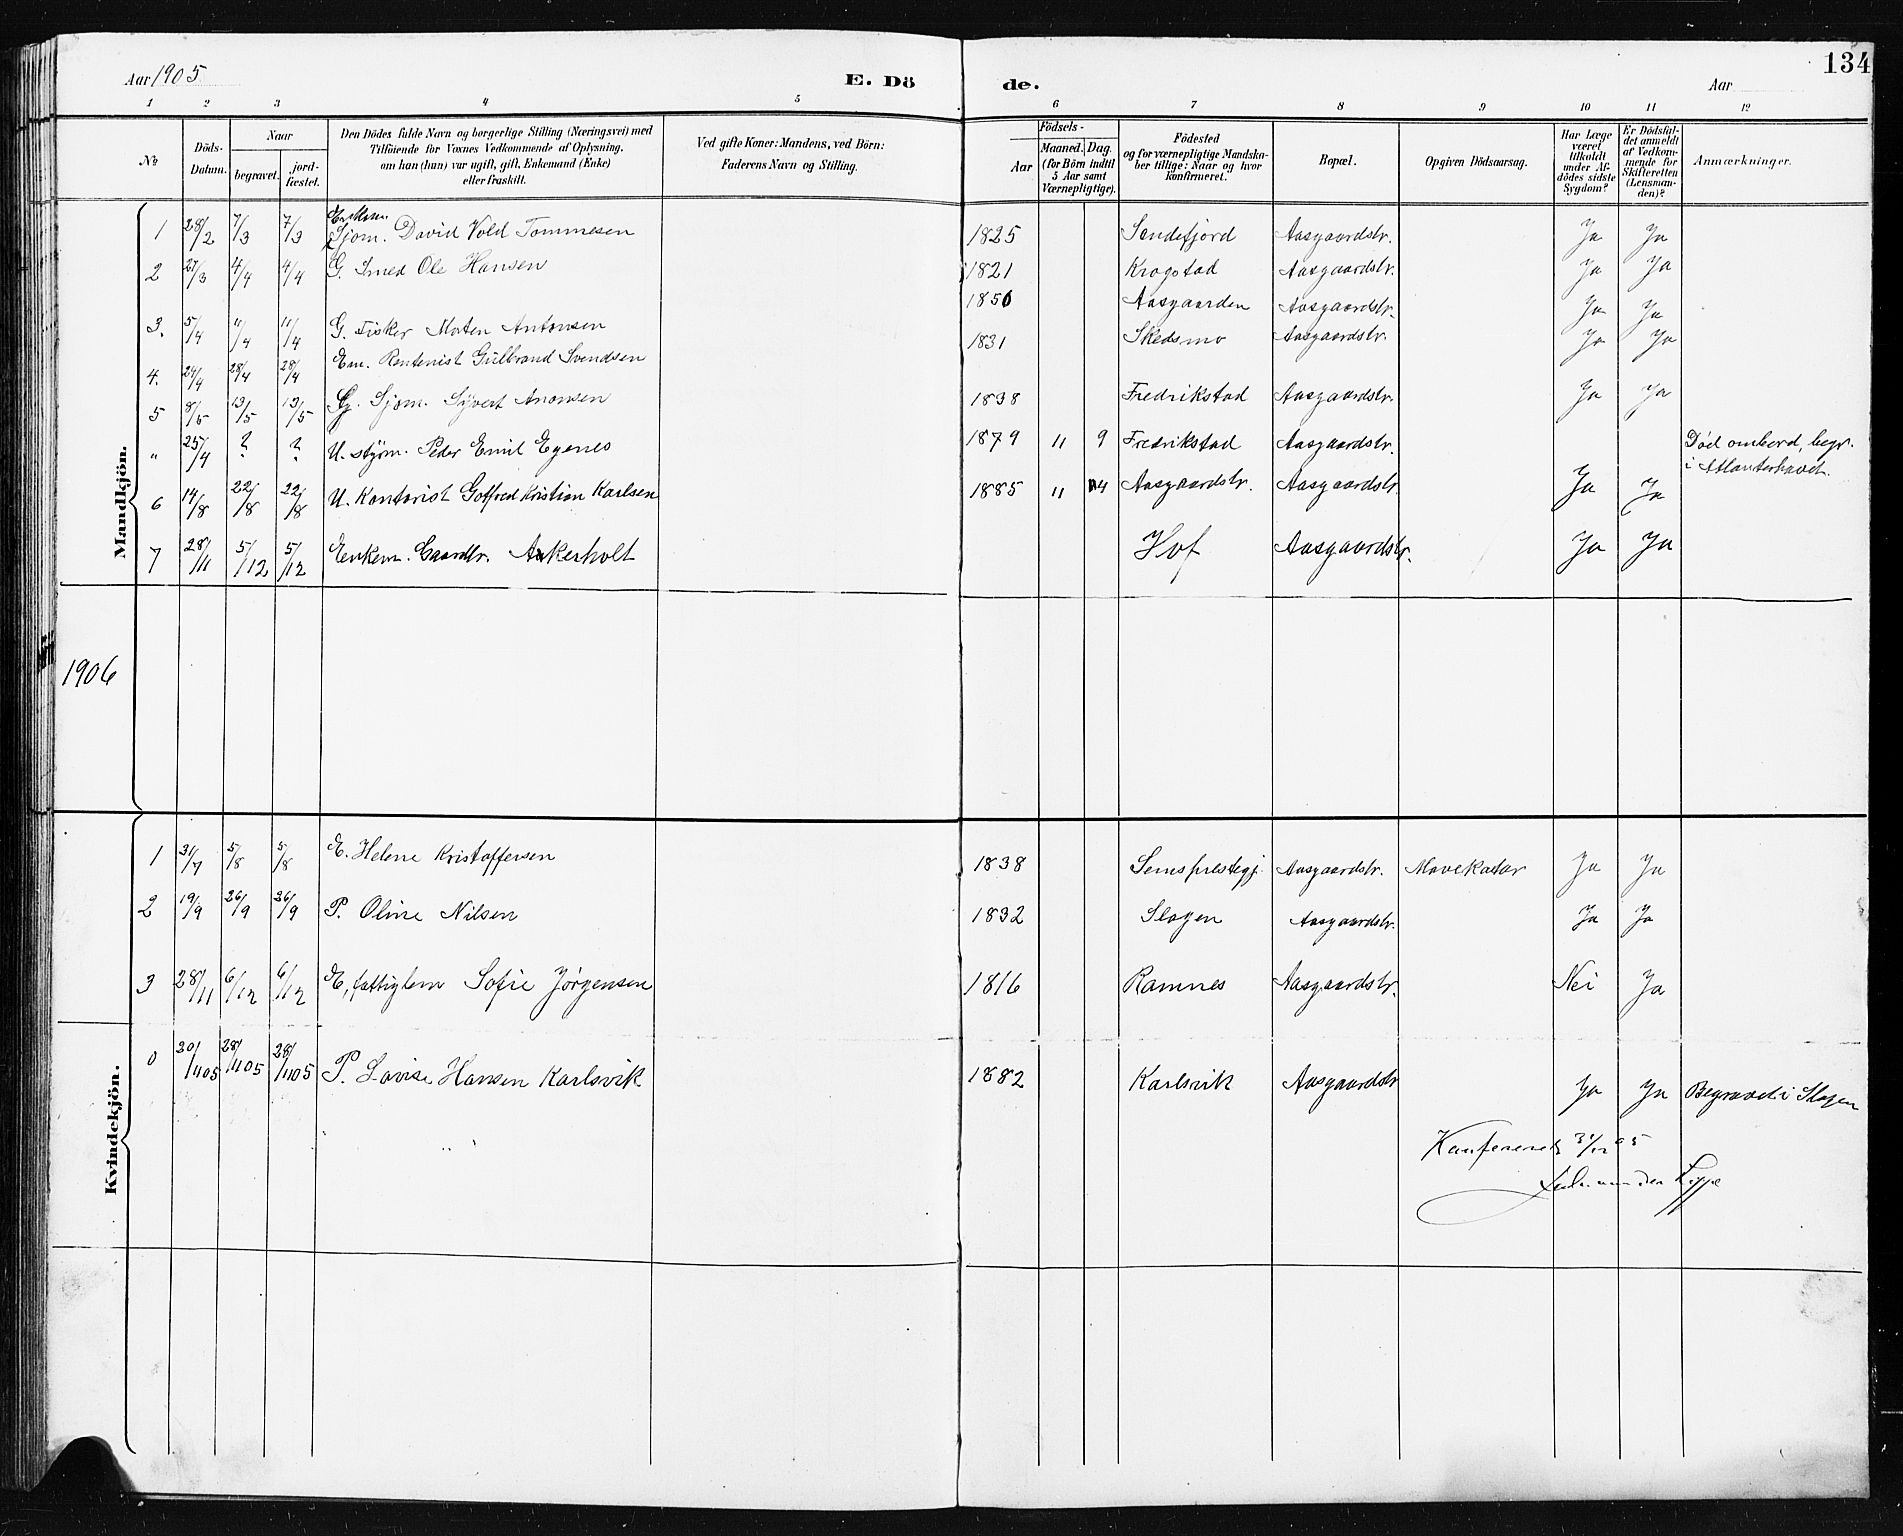 134
Aar 1905 E. Dö de. Aar
1 2 3 4 5 6 7 8 9 10 11 12
No
Döds-Datum.
Naar
begravet.
jordfæstet.
Den Dödes fulde Navn og borgerlige Stilling (Næringsvei) med
Tilföiende for Voxnes Vedkommende af Oplysning,
om han (hun) var ugift, gift, Enkemand (Enke)
eller fraskilt.
Ved gifte Koner: Mandens, ved Börn:
Faderens Navn og Stilling.
Födsels-
Aar
Maaned. Dag.
(for Börn indtil
5 Aar samt
Værnepligtige).
Födested
og for værnepligtige Mandska-
ber tillige: Naar og hvor
konfirmeret.
Bopæl.
Opgiven Dödsaarsag.
Har Læge
været
tilkaldt
under Af-
dödes sidste
Sygdom?
Er Dödsfal-
det anmeldt
af Vedkom-
mende for
Skifteretten
(Lensman-
den)?
Anmærkninger.
Mandkjön.
1 28/2 7/3 7/3 Enkem. Sjøm. David Vold Tommesen 1825 Sandefjord Aasgaardstr. Ja Ja
2 27/3 4/4 4/4 G. Smed Ole Hansen 1821 Krogstad Aasgaardstr. Ja Ja
3. 5/4 11/4 11/4 G. Fisker Morten Antonsen 1850 Aasgaarden Aasgaardstr. Ja Ja
4. 24/4 28/4 28/4 Em. Rentenist Gulbrand Svendsen 1831 Skedsmo Aasgaardstr. Ja Ja
5 8/5 13/5 13/5 G. Sjøm. Syvert Aronsen 1838 Fredrikstad Aasgaardstr. Ja Ja
" 25/4 ? ? U. styrm. Peder Emil Egenes 1879 11 9 Fredrikstad Aasgaardstr. Død ombord, begr.
i Atlanterhavet.
6 14/8 22/8 22/8 U. Kontorist Gotfred Kristian Karlsen 1885 11 4 Aasgaardstr. Aasgaardstr. Ja Ja
7 28/11 5/12 5/12 Enkem. Gaardbr. Askerholt Hof Aasgaardstr. Ja Ja
1906
Kvindekjön.
1 31/7 5/8 5/8 E. Helene Kristoffersen 1838 Sems prestegj. Aasgaardstr. Mavekatar Ja Ja
2 19/9 26/9 26/9 P. Oline Nilsen 1832 Slagen Aasgaardstr. Ja Ja
3 28/11 6/12 6/12 E, fattiglem Sofie Jørgensen 1816 Ramnes Aasgaardstr. Nei Ja
0 20/1105 28/1105 28/1105 P. Lovise Hansen Karlsvik 1882 Karlsvik Aasgaardstr Ja Ja Begravet i Slagen
Konfereret 31/12 05
von der Lippe